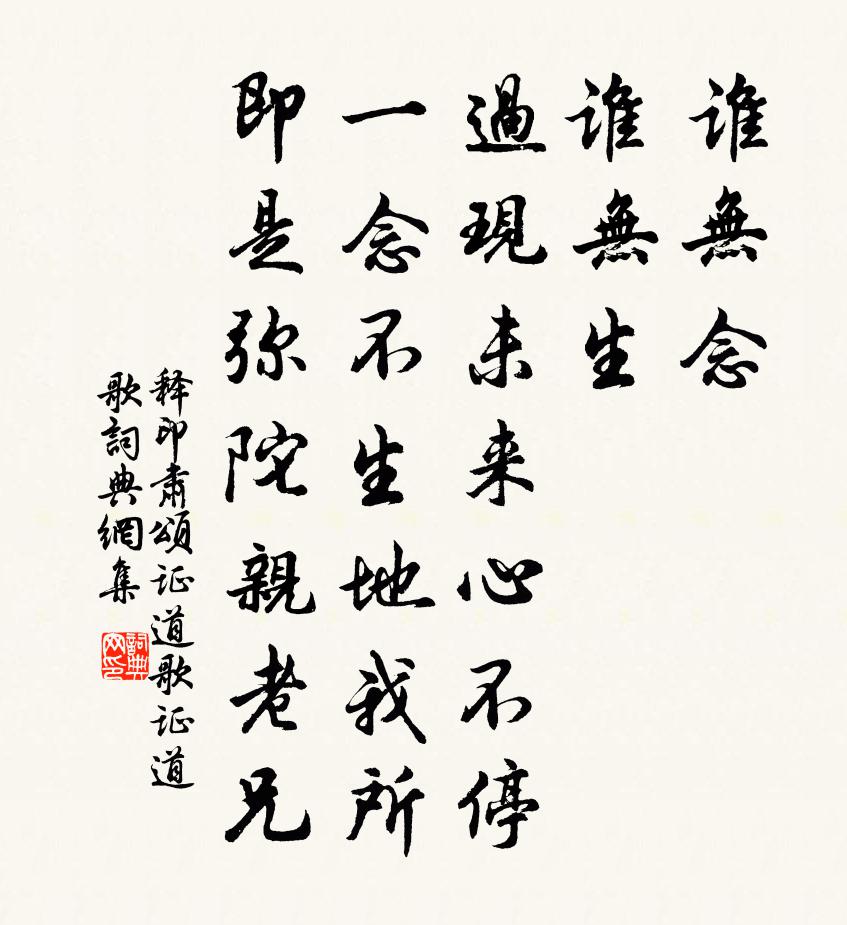 誰無念
誰無生
過現未来心不停
一念不生地我所
即是弥陀親老兄
释印肃頌证道歌证道
歌詞典網集
詞典网印